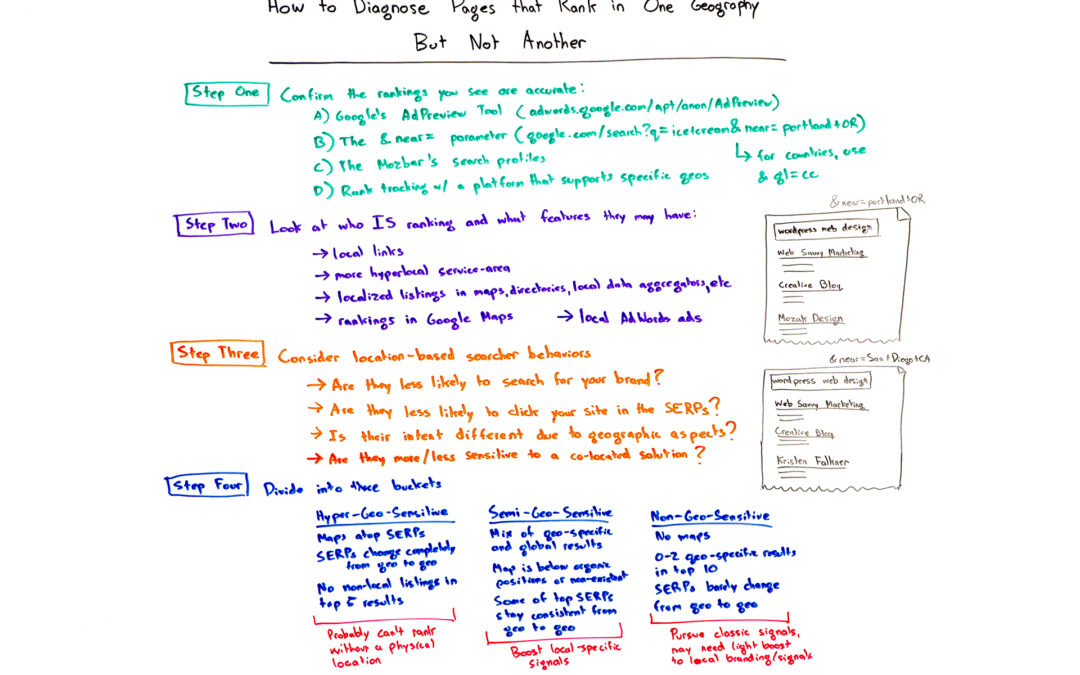 How to Diagnose Pages that Rank in One Geography
But Not Another
Step One
Confirm the rankings you see are accurate:
A) Google's AdPreview Tool (adwords.google.com/apt/anon/AdPreview)
B) The &near= parameter (google.com/search?q=ice+cream&near=portland+OR)
↳ for countries, use
& gl=cc
C) The Mozbar's search profiles
D) Rank tracking w/ a platform that supports specific geos
Step Two
Look at who IS ranking and what features they may have:
→ local links
→ more hyperlocal service-area
→ localized listings in maps, directories, local data aggregators, etc
→ rankings in Google Maps → local AdWords ads
&near=portland+OR
wordpress web design
Web Savvy Marketing
Creative Blog
Mozak Design
Step Three
Consider location-based searcher behaviors
→ Are they less likely to search for your brand?
→ Are they less likely to click your site in the SERPs?
→ Is their intent different due to geographic aspects?
→ Are they more/less sensitive to a co-located solution?
&near=San+Diego+CA
wordpress web design
Web Savvy Marketing
Creative Blog
Kristen Falkner
Step Four
Divide into three buckets
Hyper-Geo-Sensitive
Maps atop SERPs
SERPs change completely
from geo to geo
No non-local listings in
top 5 results
Probably can't rank
without a physical
location
Semi-Geo-Sensitive
Mix of geo-specific
and global results
Map is below organic
positions or non-existent
Some of top SERPs
stay consistent from
geo to geo
Boost local-specific
signals
Non-Geo-Sensitive
No maps
0-2 geo-specific results
in top 10
SERPs barely change
from geo to geo
Pursue classic signals,
may need light boost
to local branding/signals